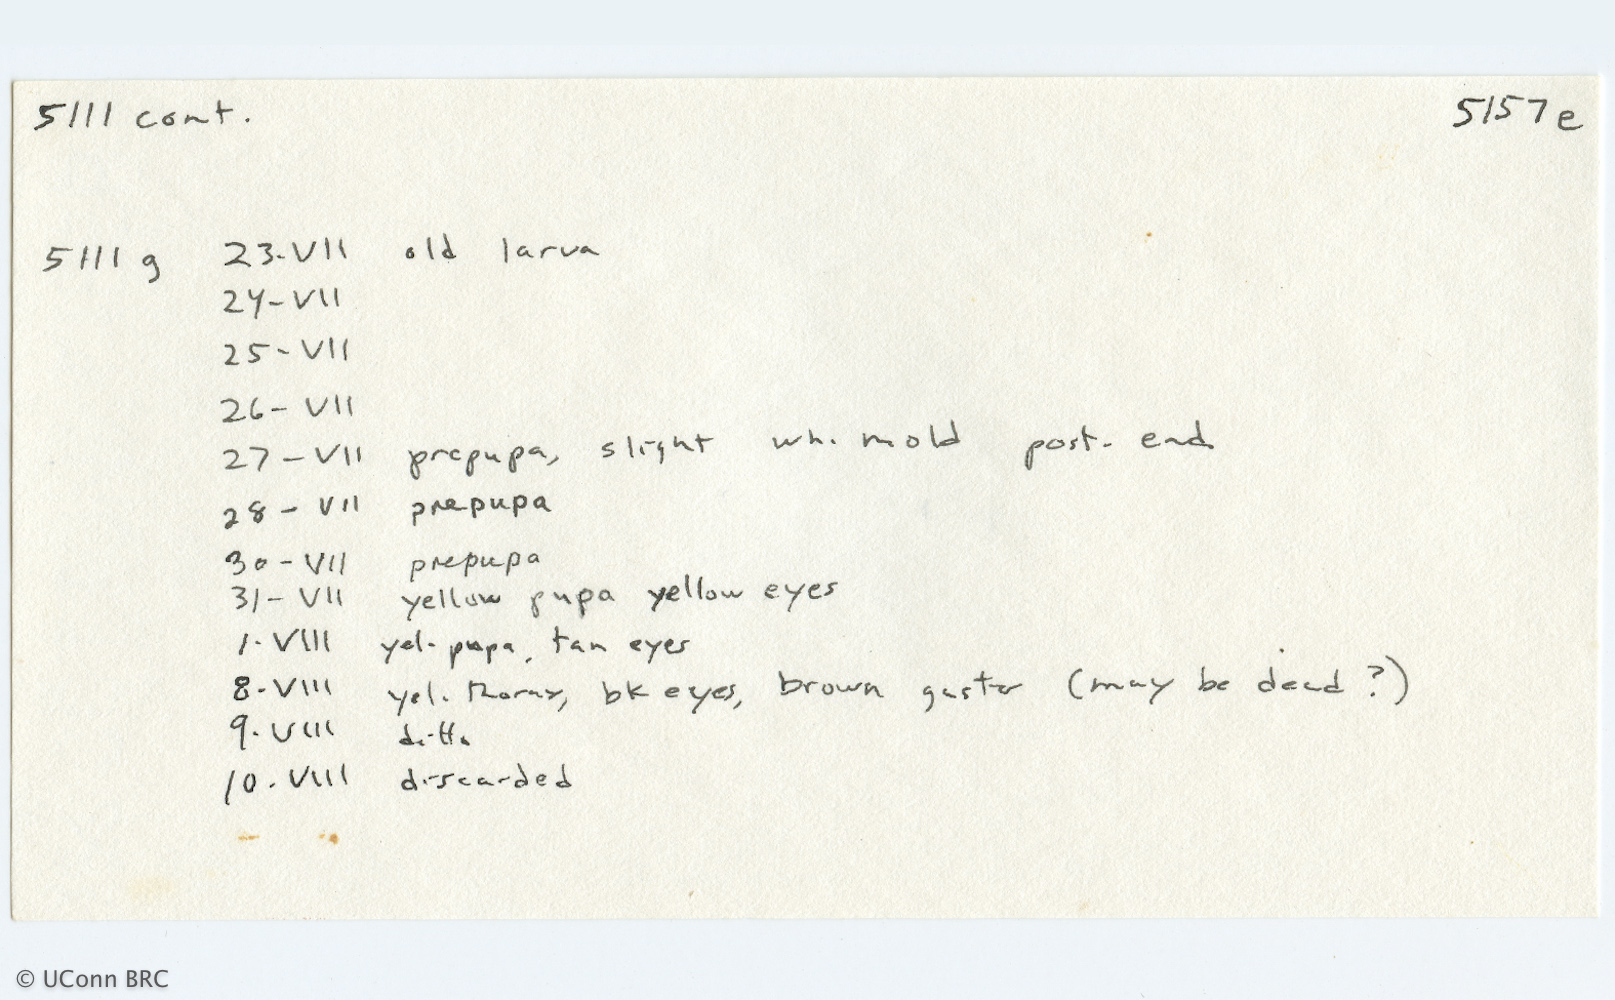 5111 cont. 5157 e
5111 g 23-VII old larva
24-VII
25-VII
26-VII
27-VII prepupa, slight wh. mold post. end
28-VII prepupa
30-VII prepupa
31-VII yellow pupa yellow eyes
1-VIII yel. pupa, tan eyes
8-VIII yel. thorax, bk eyes, brown gaster (may be dead?)
9-VIII ditto
10-VIII discarded
© UConn BRC